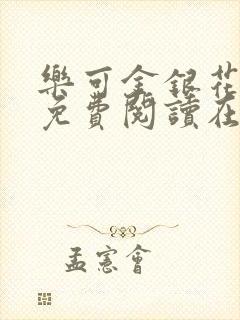 樂可金銀花
免費閱讀在
孟憲會